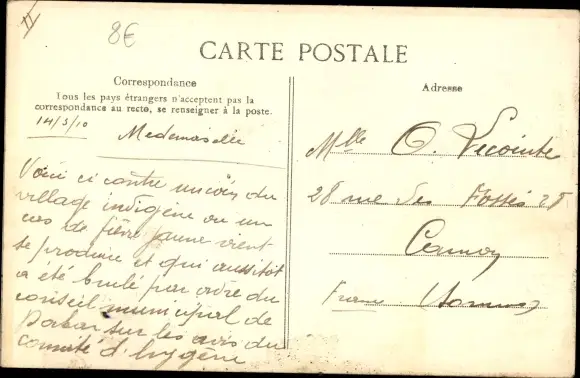 8€
CARTE POSTALE
Correspondance
Tous les pays étrangers n'acceptent pas la
correspondance au recto, se renseigner à la poste.
Adresse
14/3/10
Mademoiselle
Voici ci contre un coin du
village indigène ou un
cas de fièvre jaune vient
se produire et qui aussitôt
a été brulé par ordre du
conseil municipal de
Dakar sur les avis du
comité d'hygène
Mlle O. Lecointe
28 rue des Fossés 28
France (Somme)